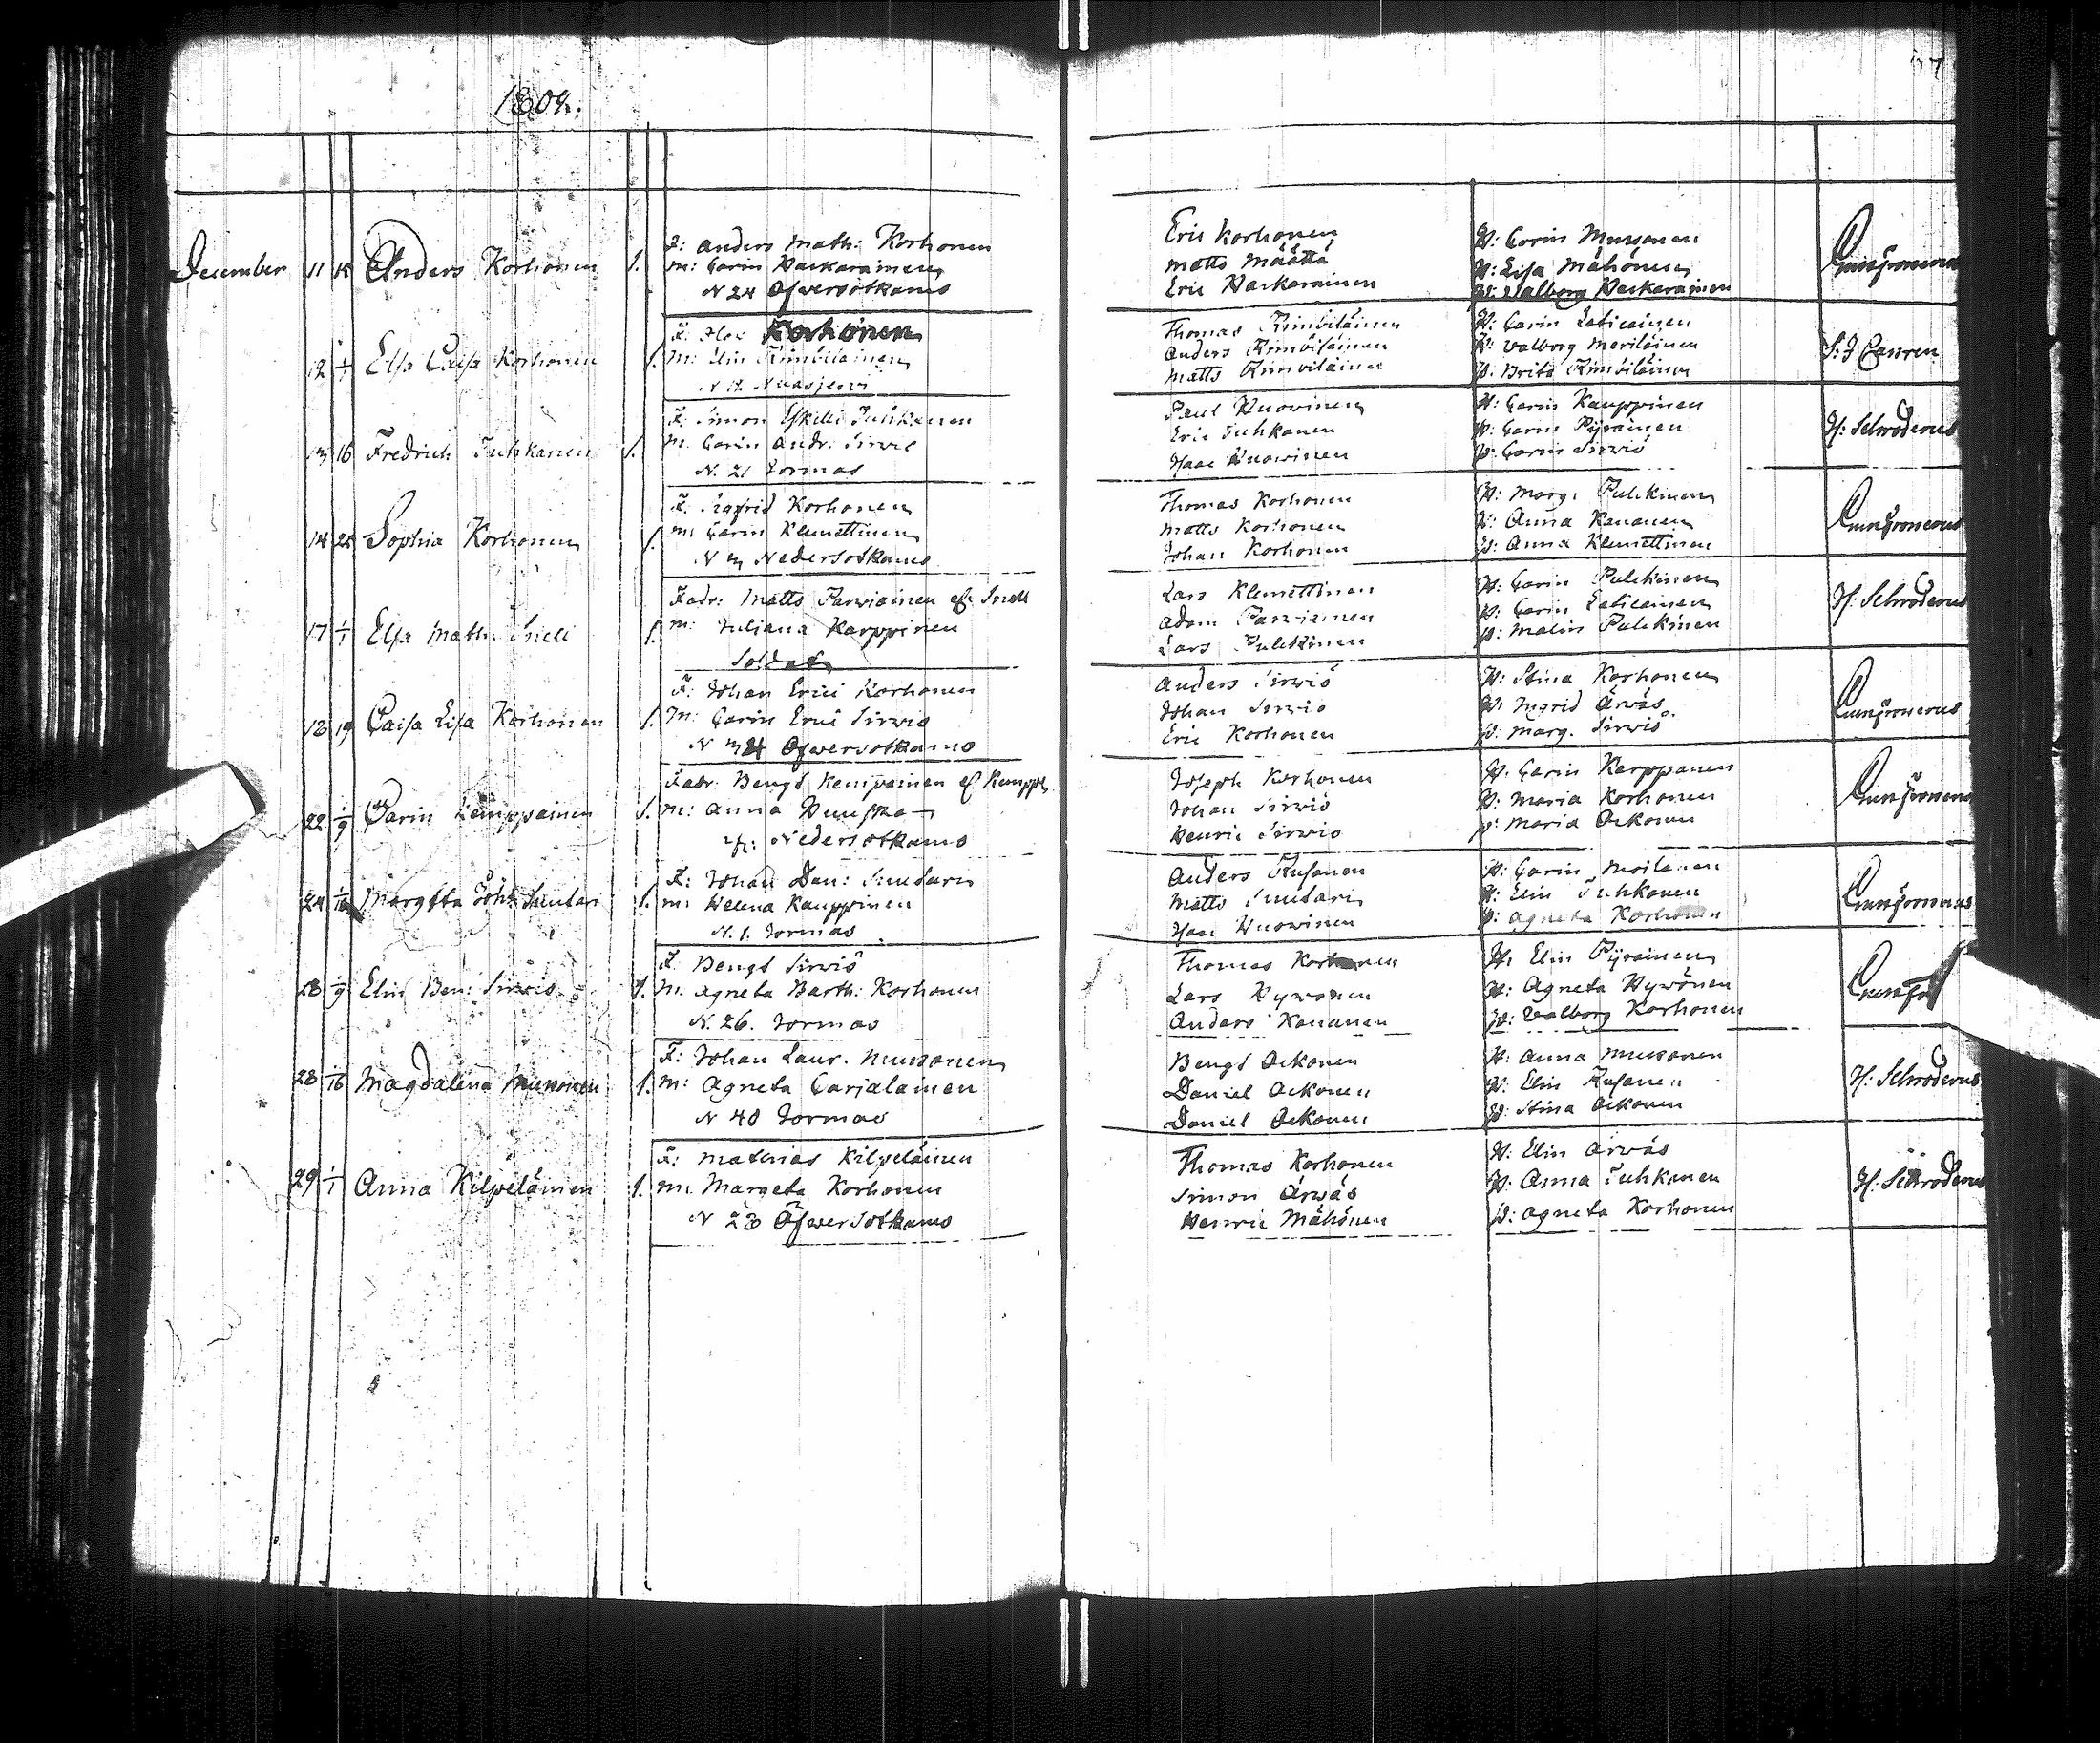 1804.
December 11 18 Anders Korhonen 1.
F: Anders Math: Korhonen
M: Carin Haskarainen
N 24 Ofwersotkamo
Eric Korhonen
Matts Määttä
Eric Haskarainen
H: Carin Mussonen
H: Lisa Mähönen
P: Valborg Haskarainen
12 1/1 Elsa Caisa Korhonen 1.
Korhonen
M: Elin Kimbiläinen
N 12 Nuasjerwi
Thomas Kimbiläinen
Anders Kimbiläinen
Matts Kimbiläinen
H: Carin Laticainen
H: Valborg Meriläinen
P: Brita Kimbiläinen
13 16 Fredrich Juhkanen 1.
F: Simon Eskilli Juhkanen
M: Carin Andr: Sirwiö
N. 21 Jormas
Paul Huowinen
Eric Juhkanen
Isaac Huowinen
H: Carin Kauppinen
P: Carin Pyrainen
P: Carin Sirwiö
H: Schroderus
14 Sophia Korhonen 1.
F: Sigfrid Korhonen
M: Carin Klemettinen
N 3 Nedersotkamo
Thomas Korhonen
Matts Korhonen
Johan Korhonen
H: Marg: Pulckinen
H: Anna Kananen
P: Anna Klemettinen
17 1/1 Elsa Math: Snell 1.
Fadr: Matts Parviainen el: Snell
M: Juliana Karppinen
Soldat
Lars Klemettinen
Adam Parviainen
Lars Pulckinen
H: Carin Pulckinen
P: Carin Laticainen
P: Malin Pulckinen
H: Schroderus
18 19 Caisa Lisa Korhonen 1.
F: Johan Erici Korhonen
M: Carin Erici Sirwiö
N 34 Ofwersotkamo
Anders Sirwiö
Johan Sirwiö
Eric Korhonen
H: Stina Korhonen
H: Ingrid Ärväs
P: Marg. Sirwiö
22 1/9 Carin Kemppainen 1.
Fadr: Bengt Kempainen el Kemppe
M: Anna
Nedersotkamo
Joseph Korhonen
Johan Sirwiö
Henric Sirwiö
H: Carin Karppanen
P: Maria Korhonen
P: Maria Ockonen
24 1/16 Margetta Joh: Suutari 1.
F: Johan Dan: Suutari
M: Helena Kauppinen
N. 1. Jormas
Anders Rusanen
Matts Suutari
Isaac Huowinen
H: Carin Moilanen
H: Elin Juhkanen
P: Agneta Korhonen
28 1/9 Elin Ben: Sirwiö 1.
F: Bengt Sirwiö
M: Agneta Barth: Korhonen
N. 26. Jormas
Thomas Korhonen
Lars Hywönen
Anders Kananen
H: Elin Pyrainen
H: Agneta Hywönen
P: Valborg Korhonen
28 1/16 Magdalena Mussonen 1.
F: Johan Laur. Mussonen
M: Agneta Carjalainen
N 40 Jormas
Bengt Ockonen
Daniel Ockonen
Daniel Ockonen
H: Anna Mussonen
H: Elin Rusanen
P: Stina Ockonen
H: Schroderus
29 1/1 Anna Kilpeläinen 1.
F: Mathias Kilpeläinen
M: Margeta Korhonen
N 23 Ofwersotkamo
Thomas Korhonen
Simon Ärväs
Henric Mähönen
H: Elin Ärväs
H: Anna Juhkanen
P: Agneta Korhonen
H: Schroderus